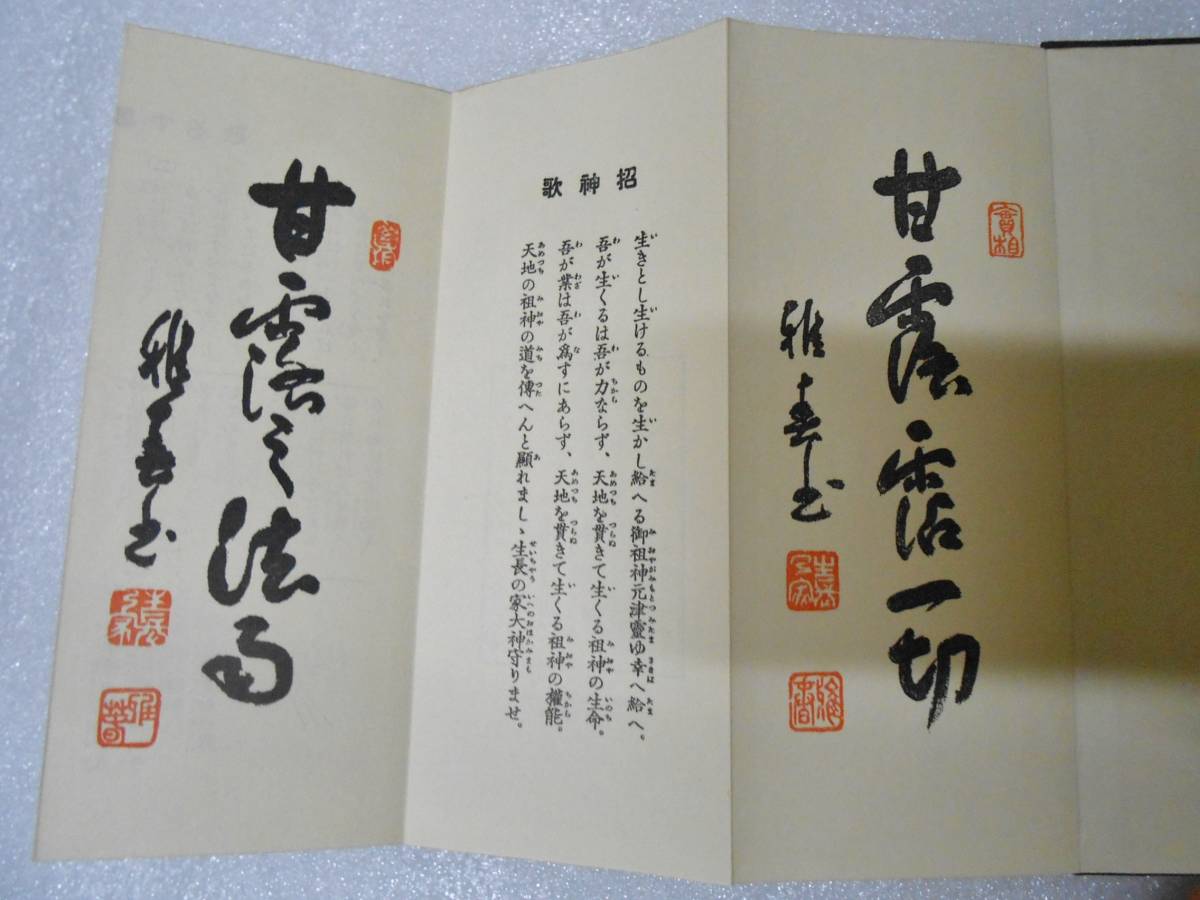 實相
甘露霑一切
雅春書
生長乃家
雅春
招神歌
生きとし生けるものを生かし給へる御祖神元津靈ゆ幸へ給へ。
吾が生くるは吾が力ならず、天地を貫きて生くる祖神の生命。
吾が業は吾が爲すにあらず、天地を貫きて生くる祖神の權能。
天地の祖神の道を傳へんと顯れましゝ生長の家大神守りませ。
甘露之法雨
雅春書
雅春